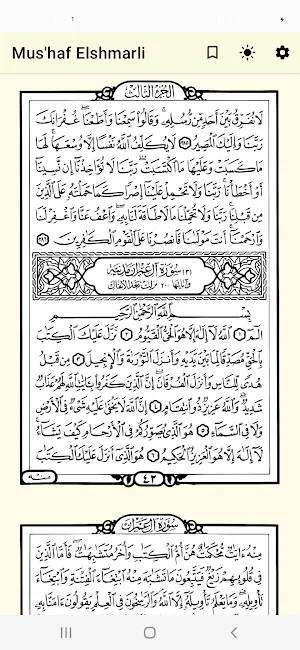 Mus'haf Elshmarli
الجزء الثالث
لَا نُفَرِّقُ بَيْنَ أَحَدٍ مِّن رُّسُلِهِۦ وَقَالُوا۟ سَمِعْنَا وَأَطَعْنَا غُفْرَانَكَ
رَبَّنَا وَإِلَيْكَ ٱلْمَصِيرُ ٢٨٥ لَا يُكَلِّفُ ٱللَّهُ نَفْسًا إِلَّا وُسْعَهَا لَهَا
مَا كَسَبَتْ وَعَلَيْهَا مَا ٱكْتَسَبَتْ رَبَّنَا لَا تُؤَاخِذْنَآ إِن نَّسِينَآ
أَوْ أَخْطَأْنَا رَبَّنَا وَلَا تَحْمِلْ عَلَيْنَآ إِصْرًا كَمَا حَمَلْتَهُۥ عَلَى ٱلَّذِينَ
مِن قَبْلِنَا رَبَّنَا وَلَا تُحَمِّلْنَا مَا لَا طَاقَةَ لَنَا بِهِۦ وَٱعْفُ عَنَّا وَٱغْفِرْ لَنَا
وَٱرْحَمْنَآ أَنتَ مَوْلَىٰنَا فَٱنصُرْنَا عَلَى ٱلْقَوْمِ ٱلْكَٰفِرِينَ ٢٨٦
(٣) سورة آل عمران مدنية
وآياتها ٢٠٠ نزلت بعد الأنفال
بِسْمِ ٱللَّهِ ٱلرَّحْمَٰنِ ٱلرَّحِيمِ
الٓمٓ ١ ٱللَّهُ لَآ إِلَٰهَ إِلَّا هُوَ ٱلْحَىُّ ٱلْقَيُّومُ ٢ نَزَّلَ عَلَيْكَ ٱلْكِتَٰبَ
بِٱلْحَقِّ مُصَدِّقًا لِّمَا بَيْنَ يَدَيْهِ وَأَنزَلَ ٱلتَّوْرَىٰةَ وَٱلْإِنجِيلَ ٣ مِن قَبْلُ
هُدًى لِّلنَّاسِ وَأَنزَلَ ٱلْفُرْقَانَ إِنَّ ٱلَّذِينَ كَفَرُوا۟ بِـَٔايَٰتِ ٱللَّهِ لَهُمْ عَذَابٌ
شَدِيدٌ وَٱللَّهُ عَزِيزٌ ذُو ٱنتِقَامٍ ٤ إِنَّ ٱللَّهَ لَا يَخْفَىٰ عَلَيْهِ شَىْءٌ فِى ٱلْأَرْضِ
وَلَا فِى ٱلسَّمَآءِ ٥ هُوَ ٱلَّذِى يُصَوِّرُكُمْ فِى ٱلْأَرْحَامِ كَيْفَ يَشَآءُ
لَآ إِلَٰهَ إِلَّا هُوَ ٱلْعَزِيزُ ٱلْحَكِيمُ ٦ هُوَ ٱلَّذِىٓ أَنزَلَ عَلَيْكَ ٱلْكِتَٰبَ
٤٢
منه
سورة آل عمران
مِنْهُ ءَايَٰتٌ مُّحْكَمَٰتٌ هُنَّ أُمُّ ٱلْكِتَٰبِ وَأُخَرُ مُتَشَٰبِهَٰتٌ فَأَمَّا ٱلَّذِينَ
فِى قُلُوبِهِمْ زَيْغٌ فَيَتَّبِعُونَ مَا تَشَٰبَهَ مِنْهُ ٱبْتِغَآءَ ٱلْفِتْنَةِ وَٱبْتِغَآءَ
تَأْوِيلِهِۦ وَمَا يَعْلَمُ تَأْوِيلَهُۥٓ إِلَّا ٱللَّهُ وَٱلرَّٰسِخُونَ فِى ٱلْعِلْمِ يَقُولُونَ ءَامَنَّا بِهِۦ